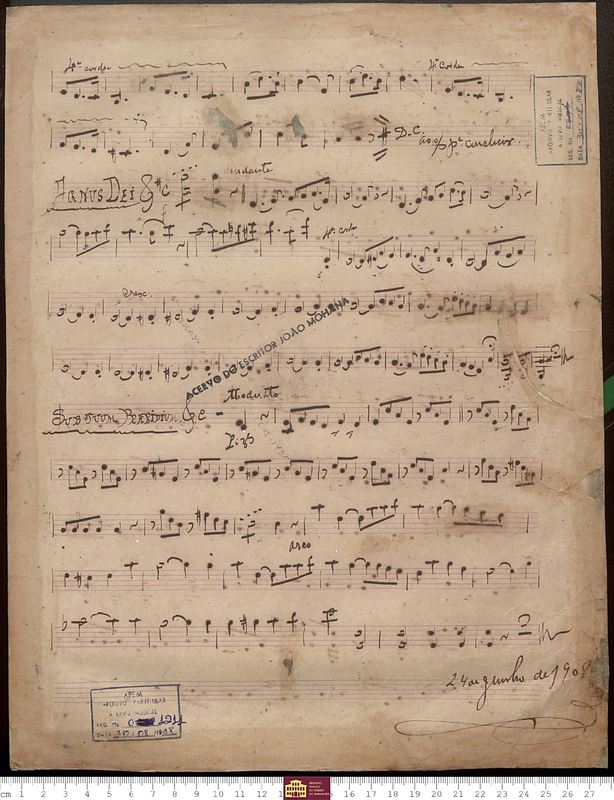 4ª corda
4ª Corda
D.C.
APEM
ARQUIVO PARTICULAR
ACERVO MUSICAL
REG. Nº
DATA 30/08/1978
Andante
AGNUS DEI
4ª corda
Cresc.
ACERVO DO ESCRITOR JOÃO MOHANA
Moderato
SUB TUUM PRÆSIDIUM
Pizz
arco
24 de Junho de 1908
APEM
ARQUIVO PARTICULAR
ACERVO MUSICAL
REG. Nº
DATA 30/08/1978
cm 1 2 3 4 5 6 7 8 9 10 11 12 13 14 15 16 17 18 19 20 21 22 23 24 25 26 27